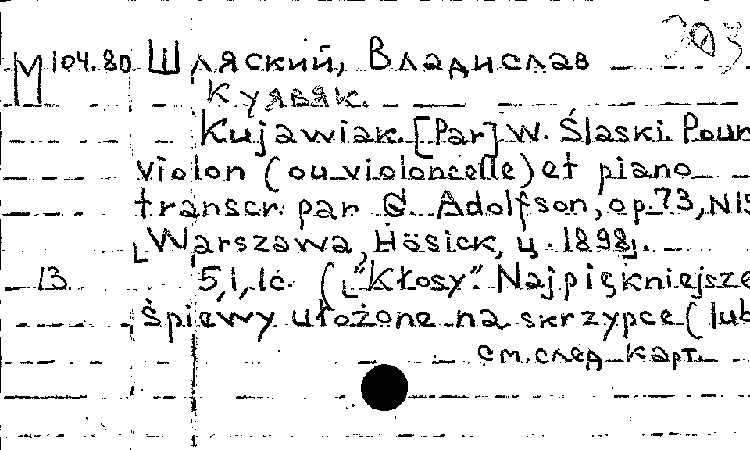 М 104.80 Шляский, Владислав
Куявяк.
Kujawiak. [Par] W. Ślaski. Pour
violon (ou violoncelle) et piano
transcr. par G. Adolfson, op. 73, N15
[Warszawa, Hösick, ц. 1898].
13 5, 1, 1с. (["Kłosy". Najpiękniejsze
śpiewy ułożone na skrzypce (lub
см. след. карт.